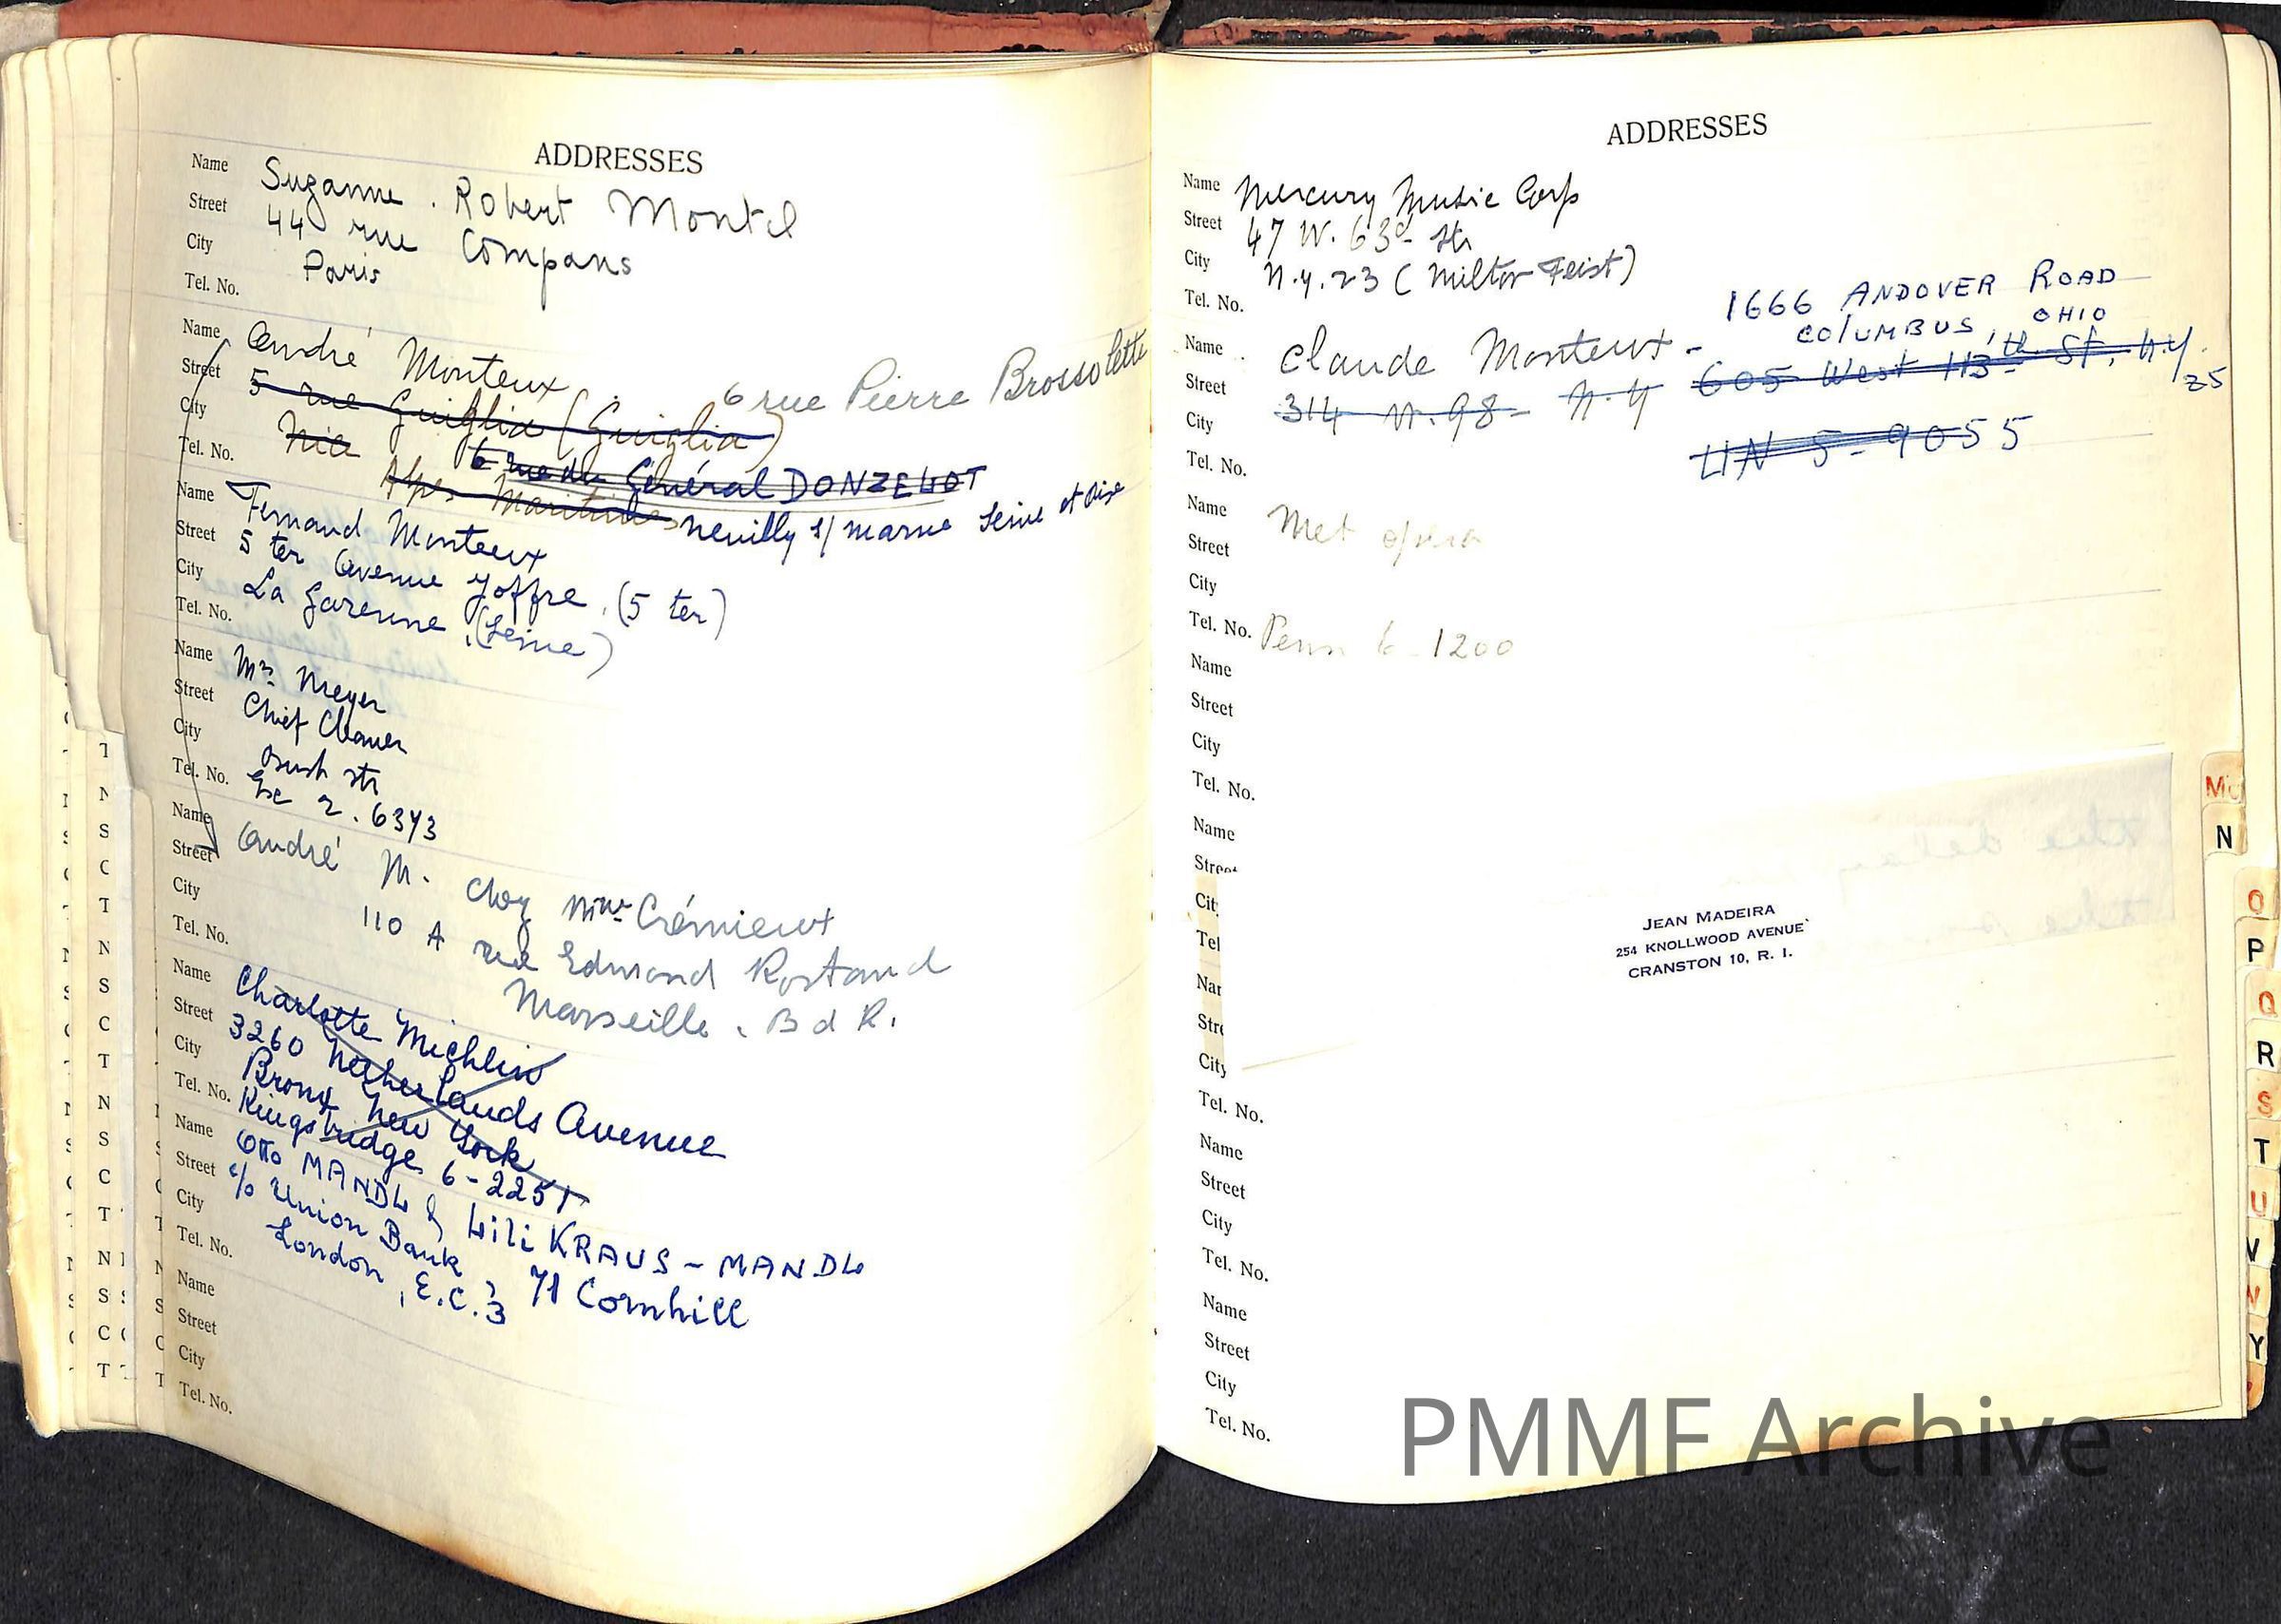 ADDRESSES
Name Suzanne . Robert Montel
Street 44 rue Compans
City Paris
Tel. No.
Name André Monteux
6 rue Pierre Brossolette
Street 5 rue Guiglia (Guiglia)
City Nice
6 rue du Général DONZELOT
Tel. No. Alpes Maritimes Neuilly s/ Marne Seine et Oise
Name Fernand Monteux
Street 5 ter Avenue Joffre . (5 ter)
City La Garenne . (Seine)
Tel. No.
Name Mr Meyer
Street Chief Cleaner
City Bush str
Tel. No. 2 . 6373
Name André M. Chez Mme Crémieux
Street 110 A rue Edmond Rostand
City Marseille . B d R.
Tel. No.
Name Charlotte Michlin
Street 3260 Netherlands Avenue
City Bronx New York
Tel. No. Kingsbridge 6-2251
Name Otto MANDL & Lili KRAUS - MANDL
Street c/o Union Bank, 71 Cornhill
City London, E.C. 3
Tel. No.
Name
Street
City
Tel. No.
ADDRESSES
Name Mercury Music Corp
Street 47 W. 63d Str
City N.Y. 23 (Milton Feist)
Tel. No.
1666 ANDOVER ROAD
COLUMBUS, OHIO
Name Claude Monteux -
605 West 113th St. N.Y. 25
Street 314 W. 98 - N.Y
City
UN 5-9055
Tel. No.
Name Met opera
Street
City
Tel. No. Penn 6-1200
Name
Street
City
Tel. No.
Name
Street
City
Tel
JEAN MADEIRA
254 KNOLLWOOD AVENUE
CRANSTON 10, R. I.
Nar
Stre
City
Tel. No.
Name
Street
City
Tel. No.
Name
Street
City
Tel. No.
N
O
P
Q
R
S
T
U
V
W
Y
PMMF Archive